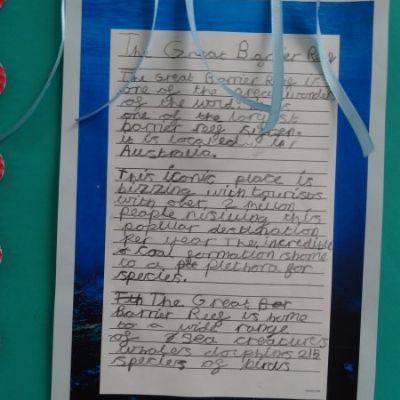 The Great Barrier Reef
The Great Barrier Reef is
one of the great wonders
of the world
one of the largest
barrier reef
it is located in
Australia.
This iconic place is
buzzing with tourists
with over 2 million
people nisiving this
popular destination
Per year The incredible
coal formation is home
to a pte plethora for
species.
Fth The Great Ber
Barrier Reef is home
to a wide range
of sea creatures
whales dolphins 215
species of birds